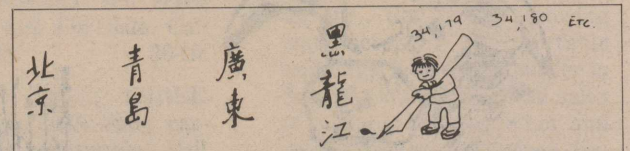 北京
青島
廣東
黑龍江
34,179 34,180 ETC.